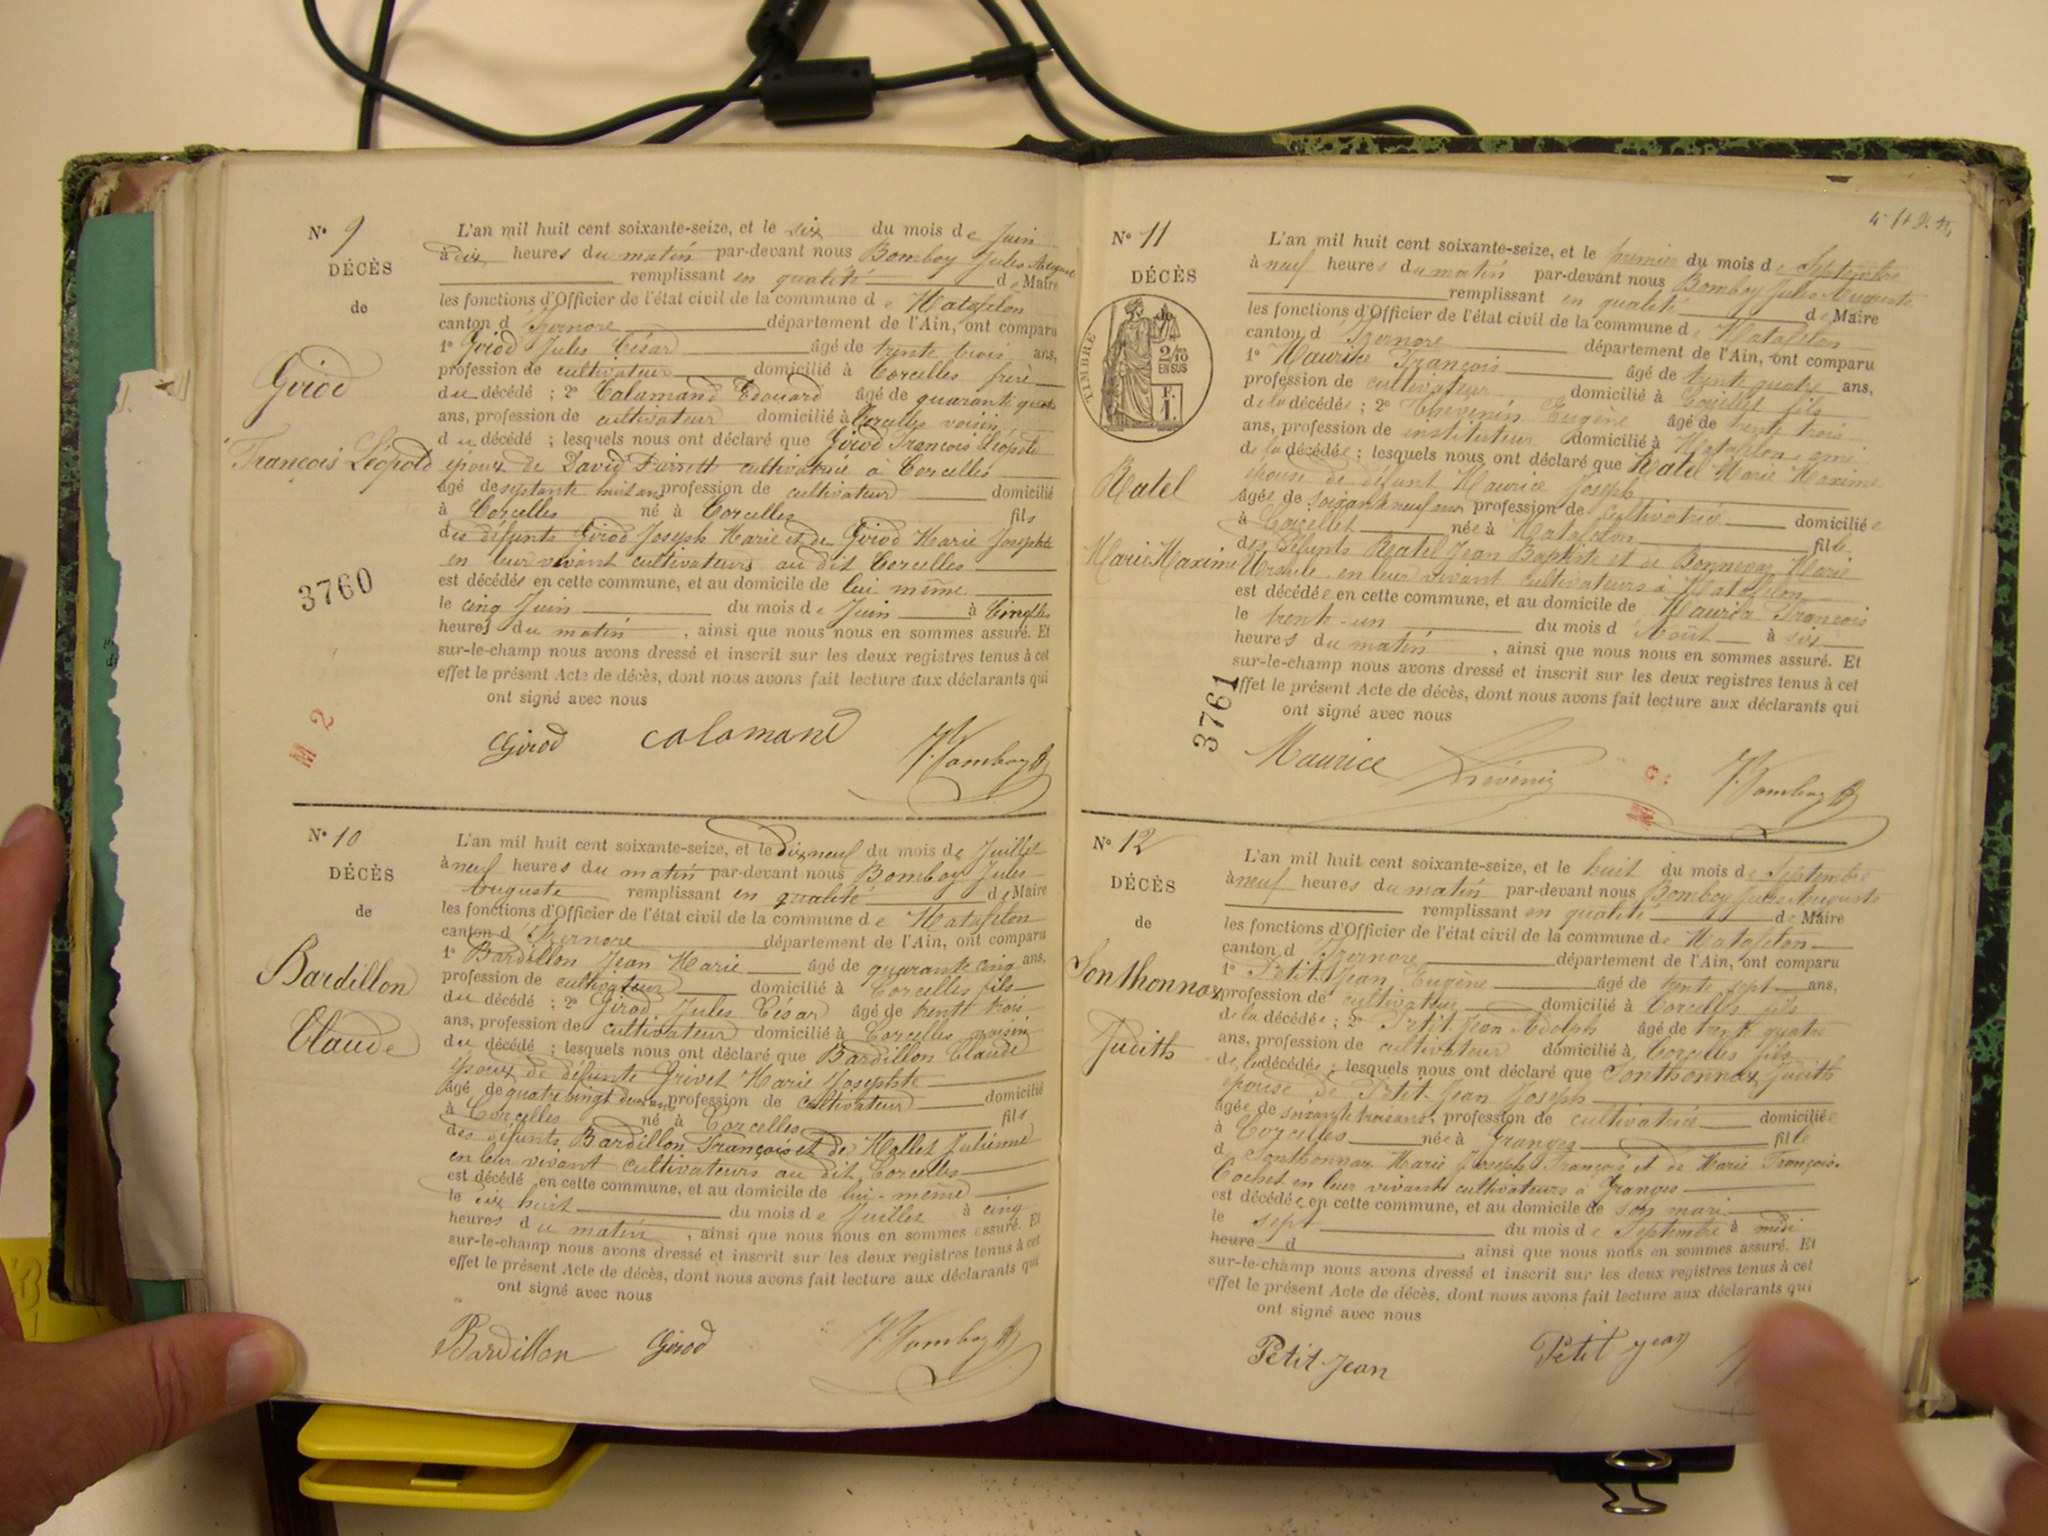 N° 9
DÉCÈS
de
Girod
François Léopold
3760
M 2
L'an mil huit cent soixante-seize, et le six du mois de Juin
à dix heures du matin par-devant nous Bomboy Jules Auguste
remplissant en qualité de Maire
les fonctions d'Officier de l'état civil de la commune de Matafelon
canton d'Izernore département de l'Ain, ont comparu
1° Girod Jules César âgé de trente trois ans,
profession de cultivateur domicilié à Corcelles frère
du décédé ; 2° Calamand Edouard âgé de quarante
ans, profession de cultivateur domicilié à Corcelles voisin
du décédé ; lesquels nous ont déclaré que Girod François Léopold
époux de David cultivatrice à Corcelles
âgé de septante huit ans profession de cultivateur domicilié
à Corcelles né à Corcelles fils
des défunts Girod Joseph Marie et de Girod Marie Josephte
en leur vivant cultivateurs au dit Corcelles
est décédé en cette commune, et au domicile de lui même
le cinq Juin du mois de Juin à
heures du matin, ainsi que nous nous en sommes assuré. Et
sur-le-champ nous avons dressé et inscrit sur les deux registres tenus à cet
effet le présent Acte de décès, dont nous avons fait lecture aux déclarants qui
ont signé avec nous
Girod Calamand J. Bomboy
N° 10
DÉCÈS
de
Bardillon
Claude
L'an mil huit cent soixante-seize, et le dix neuf du mois de Juillet
à neuf heures du matin par-devant nous Bomboy Jules
Auguste remplissant en qualité de Maire
les fonctions d'Officier de l'état civil de la commune de Matafelon
canton d'Izernore département de l'Ain, ont comparu
1° Bardillon Jean Marie âgé de quarante cinq ans,
profession de cultivateur domicilié à Corcelles fils
du décédé ; 2° Girod Jules César âgé de trente trois
ans, profession de cultivateur domicilié à Corcelles voisin
du décédé ; lesquels nous ont déclaré que Bardillon Claude
époux de défunte Grivet Marie Josephte
âgé de quatre vingt deux ans profession de cultivateur domicilié
à Corcelles né à Corcelles fils
des défunts Bardillon François et de Mollet Julienne
en leur vivant cultivateurs au dit Corcelles
est décédé en cette commune, et au domicile de lui-même
le dix huit du mois de Juillet à cinq
heures du matin, ainsi que nous nous en sommes assuré. Et
sur-le-champ nous avons dressé et inscrit sur les deux registres tenus à cet
effet le présent Acte de décès, dont nous avons fait lecture aux déclarants qui
ont signé avec nous
Bardillon Girod J. Bomboy
N° 11
DÉCÈS
TIMBRE
2/10
EN SUS
F.
1.
Ratel
Marie Maxime
3761
L'an mil huit cent soixante-seize, et le premier du mois de Septembre
à neuf heures du matin par-devant nous Bomboy Jules Auguste
remplissant en qualité de Maire
les fonctions d'Officier de l'état civil de la commune de Matafelon
canton d'Izernore département de l'Ain, ont comparu
1° Maurice François âgé de trente quatre ans,
profession de cultivateur domicilié à Corcelles fils
de la décédée ; 2° Thevenin Eugène âgé de trente trois
ans, profession de instituteur domicilié à Matafelon ami
de la décédée ; lesquels nous ont déclaré que Ratel Marie Maxime
épouse de défunt Maurice Joseph
âgée de soixante neuf ans profession de cultivatrice domiciliée
à Corcelles née à Matafelon fille
des défunts Ratel Jean Baptiste et de Bonnevay Marie
Ursule, en leur vivant cultivateurs à Matafelon
est décédée en cette commune, et au domicile de Maurice François
le trente-un du mois d'Août à six
heures du matin, ainsi que nous nous en sommes assuré. Et
sur-le-champ nous avons dressé et inscrit sur les deux registres tenus à cet
effet le présent Acte de décès, dont nous avons fait lecture aux déclarants qui
ont signé avec nous
Maurice Thévenin J. Bomboy
M
N° 12
DÉCÈS
de
Sonthonnax
Judith
L'an mil huit cent soixante-seize, et le huit du mois de Septembre
à neuf heures du matin par-devant nous Bomboy Jules Auguste
remplissant en qualité de Maire
les fonctions d'Officier de l'état civil de la commune de Matafelon
canton d'Izernore département de l'Ain, ont comparu
1° Petit Jean Eugène âgé de trente sept ans,
profession de cultivateur domicilié à Corcelles fils
de la décédée ; 2° Petit Jean Adolph âgé de trente quatre
ans, profession de cultivateur domicilié à Corcelles fils
de la décédée ; lesquels nous ont déclaré que Sonthonnax Judith
épouse de Petit-Jean Joseph
âgée de soixante trois ans, profession de cultivatrice domiciliée
à Corcelles née à Granges fille
d Sonthonnax Marie Joseph François et de Marie Françoise
Cochet en leur vivant cultivateurs à Granges
est décédée en cette commune, et au domicile de son mari
le sept du mois de Septembre à midi
heure d , ainsi que nous nous en sommes assuré. Et
sur-le-champ nous avons dressé et inscrit sur les deux registres tenus à cet
effet le présent Acte de décès, dont nous avons fait lecture aux déclarants qui
ont signé avec nous
Petit-Jean Petit Jean